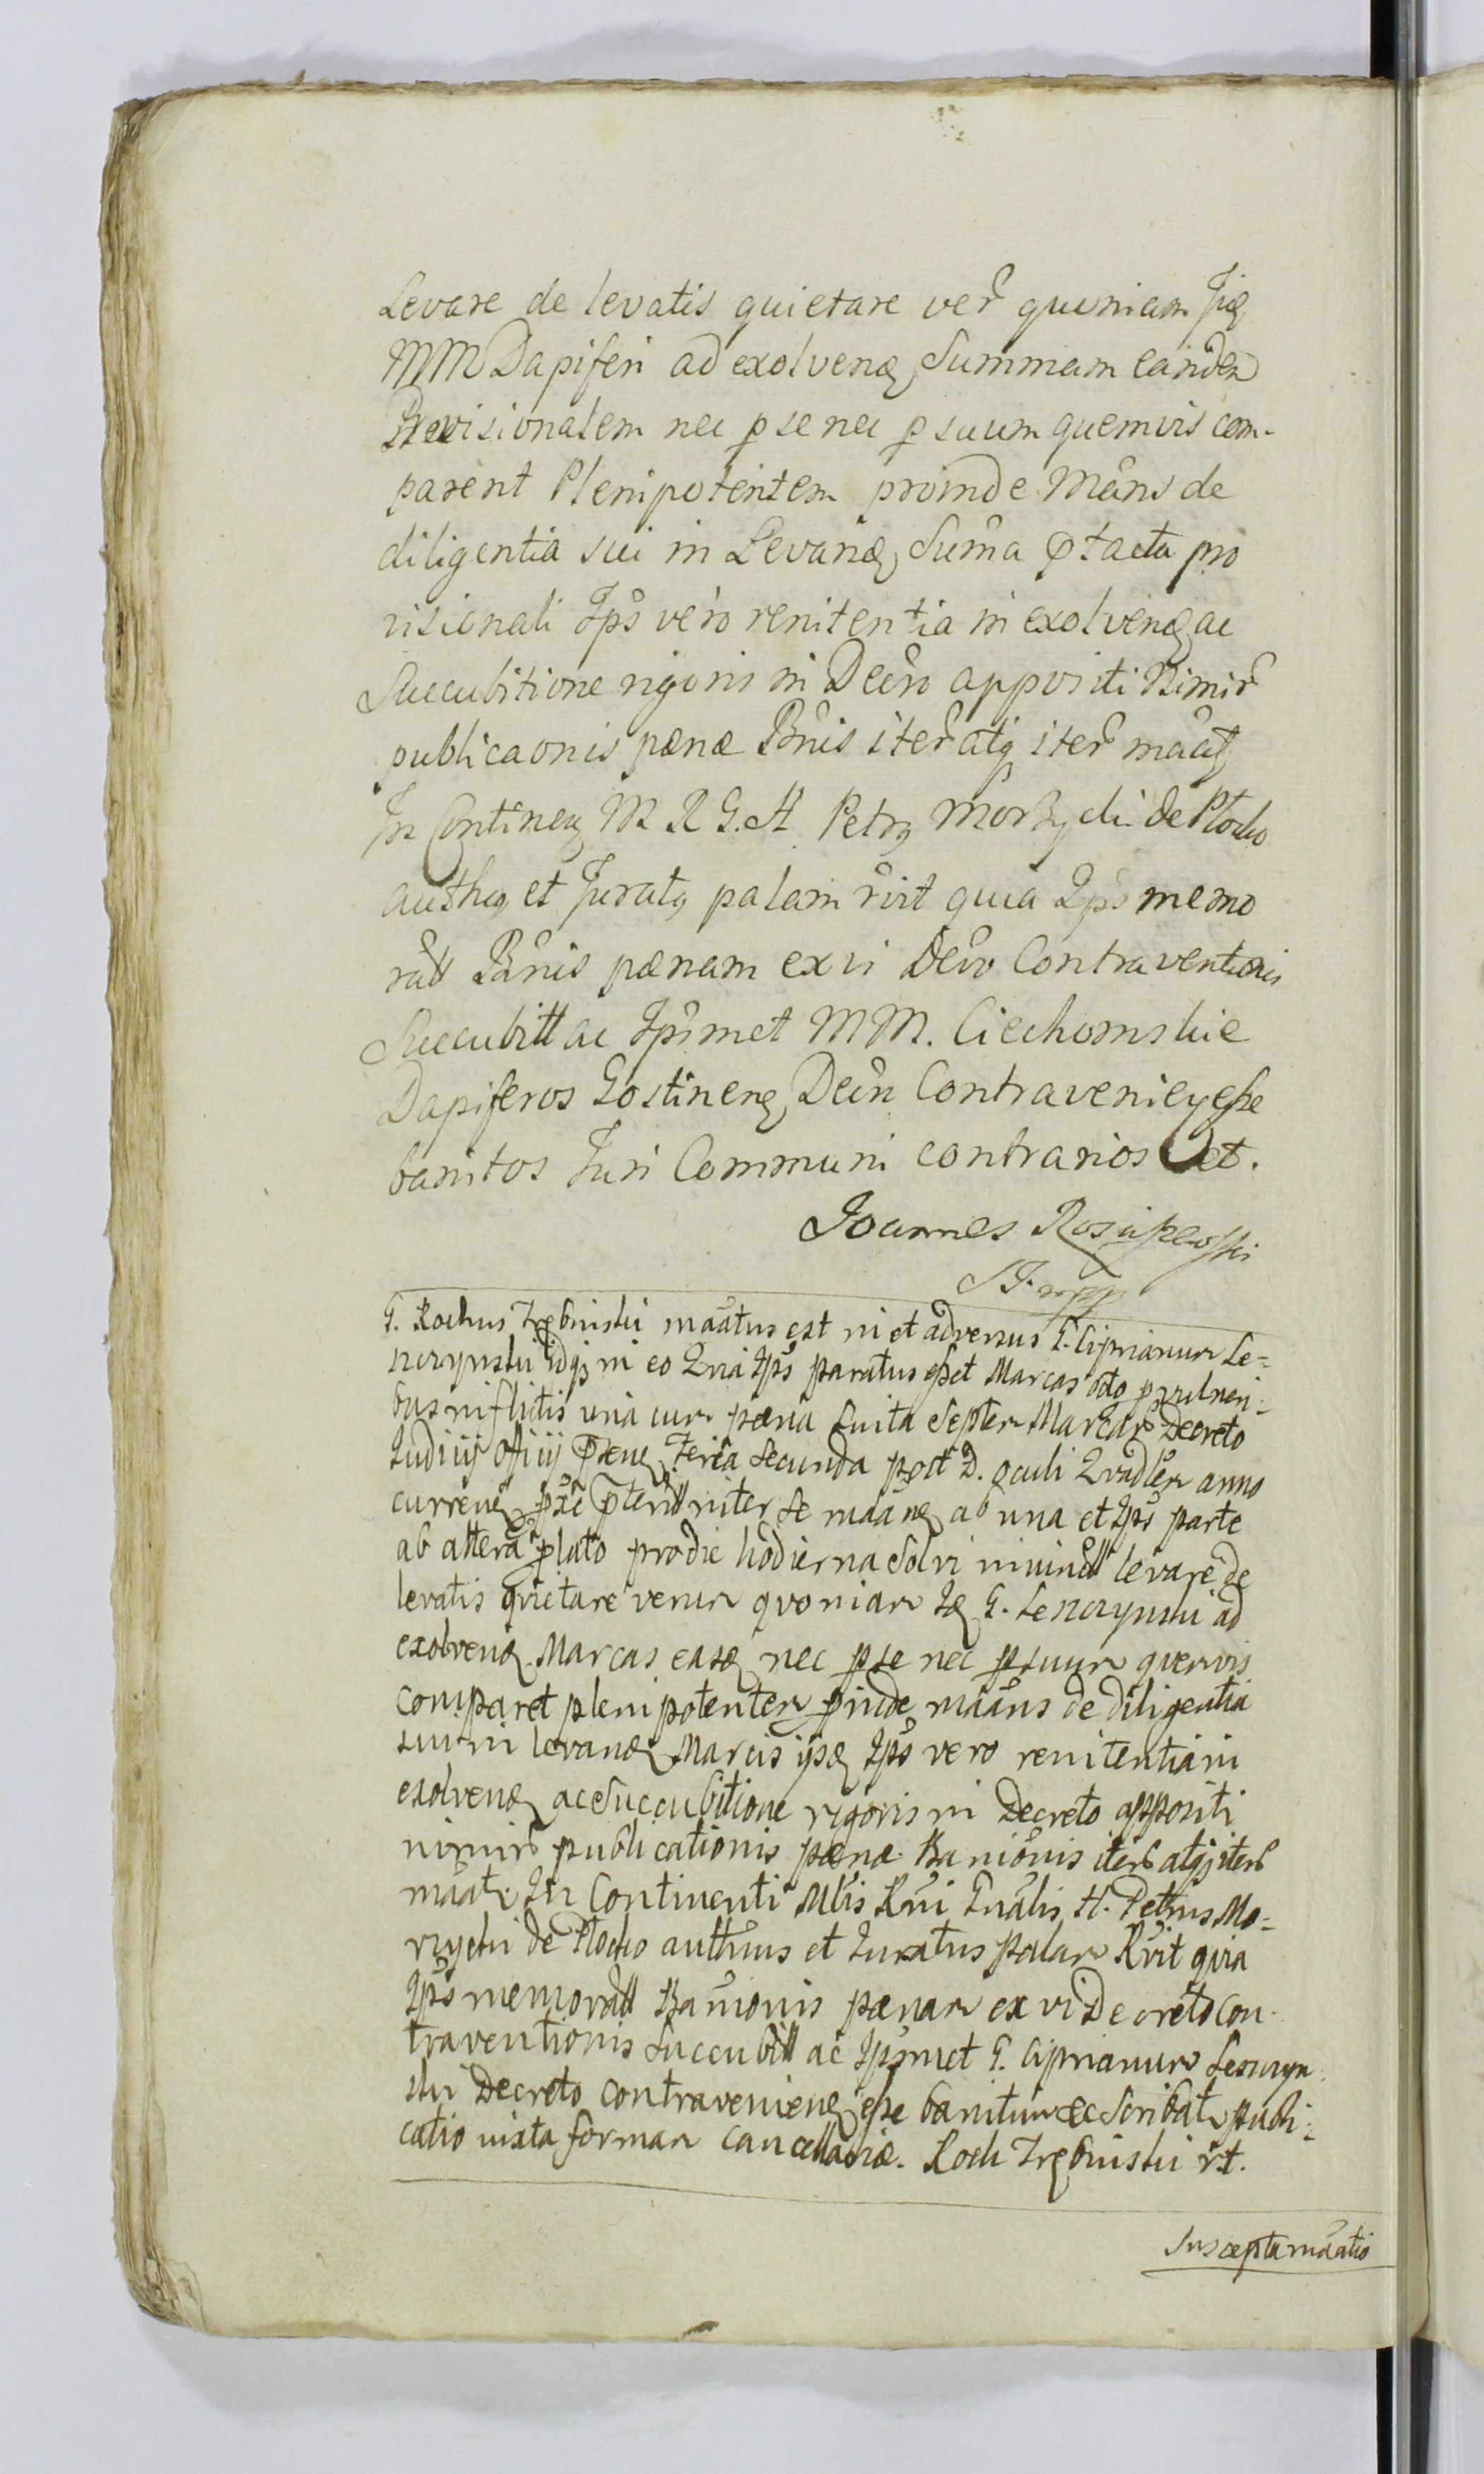 Levare de levatis quietare ver̃ quoniam Jiȩ
MM Dapiferi ad exolvenȩ Summam eandem
Provisionalem nec p se nec p suum quemvis com-
parent Plenipotentem proinde Mãns de
diligentia sui in Levanȩ Sum̃a ptacta pro
visionali Ips̃ vero renitentia in exolvenȩ ac
Succubitione rigoris in Decr̃o appositi Nimir̃
publicaonis pænæ Bñis iter̃ atq iter̃ mãatȩ
In Continenȩ M R G. H. Petrȩ Morzycki de Plocko
authȩ et Juratȩ palam r̃vit quia Ips̃ memo
ratt Bãnis pænam ex vi Decr̃o Contraventionis
Succubitt ac Ipsmet MM. Ciechomskie
Dapiferos Gostinenȩ Decr̃o Contravenieȩ esse
banitos Juri Communi contrarios et.
Joannes
G. Rochus Trębinski mãatus est in et adversus G. Ciprianum Le=
idq in eo Qria Ips̃ paratus esset Marcas octo p vulneri-
bus inflictis una cum pæna luita Septem Marcar Decreto
Judicij officij Præsenȩ Feria Secunda post D. Oculi Qvadler anno
currenȩ pxẽ pteritt inter se mãanȩ ab una et Ips̃ parte
ab altera p̃lato pro die hodierna Solvi niuinctt levare de
levatis qvietare verum qvoniam Iȩ G. Lenczynski ad
exolvenȩ Marcas easȩ nec p se nec p suum qvemvis
comparet plenipotentem pinde mãans de diligentia
sui in levanȩ Marcis ijsȩ Ips̃ vero renitentia in
exolvenȩ ac Succubitione rigoris in Decreto appositi
nimir̃ publicationis pænæ Baniõnis iter̃ atq iter̃
mãatȩ In Continenti Mlis Rñi Gnãlis H. Petrus Mo=
rzycki de Plocko authnus et Juratus palam R̃vit qvia
Ips̃ memoratt Bañionis pænam ex vi Decreto con-
traventionis Succubitt ac Ipsmet G. Ciprianum Lenczyn-
ski Decreto contravenienȩ esse banitum Et Scribatȩ publi=
catio iuxta formam cancellariæ. Roch Trębinski r̃t.
Suscepta mãatio